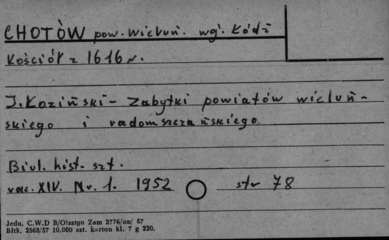 CHOTÓW pow. Wieluń. wg. Łódź
Kościół z 1616 r.
J. Koziński - Zabytki powiatów wieluń-
skiego i radomszczańskiego
Biul. hist. szt.
roc. XIV. Nr. 1. 1952 str 78
Jedn. C.W.D B/Olsztyn Zam 2776/on/ 57
Bltk. 2563/57 10.000 szt. karton kl. 7 g 220.